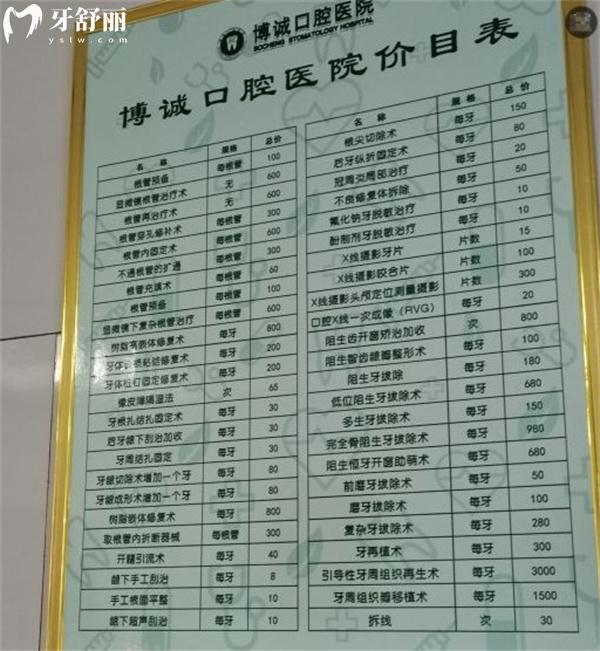 牙舒丽
yslw.com
博诚口腔医院
BOCHENG STOMATOLOGY HOSPITAL
博诚口腔医院价目表
名 称 规格 总价
根管预备 每根管 100
显微镜根管治疗术 无 600
根管再治疗术 无 600
根管穿孔修补术 每根管 300
根管内固定术 每根管 600
不通根管的扩通 每根管 300
根管充填术 每根管 60
根管预备 每根管 100
显微镜下复杂根管治疗 每根管 600
树脂高嵌体修复术 每牙 800
牙体 粘结修复术 每牙 200
牙体桩钉固定修复术 每牙 200
橡皮障隔湿法 次 65
牙根扎结扎固定术 每牙 30
后牙龈下刮治加收 每牙 30
牙周结扎固定 每牙 30
牙龈切除术增加一个牙 每牙 80
牙龈成形术增加一个牙 每牙 80
树脂嵌体修复术 每牙 800
取根管内折断器械 每根管 300
开髓引流术 每牙 40
龈下手工刮治 每牙 8
手工根面平整 每牙 10
龈下超声刮治 每牙 10
名 称 规格 总价
根尖切除术 每牙 150
后牙纵折固定术 每牙 80
冠周炎局部治疗 每牙 20
不良修复体拆除 每牙 50
氟化钠牙脱敏治疗 每牙 10
酚制剂牙脱敏治疗 每牙 10
X线摄影牙片 片数 15
X线摄影咬合片 片数 100
X线摄影头颅定位测量摄影 片数 300
口腔X线一次成像（RVG） 每牙 20
阻生齿开窗矫治加收 次 800
阻生智齿龈瓣整形术 每牙 100
阻生牙拔除 每牙 180
低位阻生牙拔除术 每牙 680
多生牙拔除术 每牙 150
完全骨阻生牙拔除术 每牙 980
阻生恒牙开窗助萌术 每牙 680
前磨牙拔除术 每牙 50
磨牙拔除术 每牙 100
复杂牙拔除术 每牙 280
牙再植术 每牙 300
引导性牙周组织再生术 每牙 3000
牙周组织瓣移植术 每牙 1500
拆线 次 30